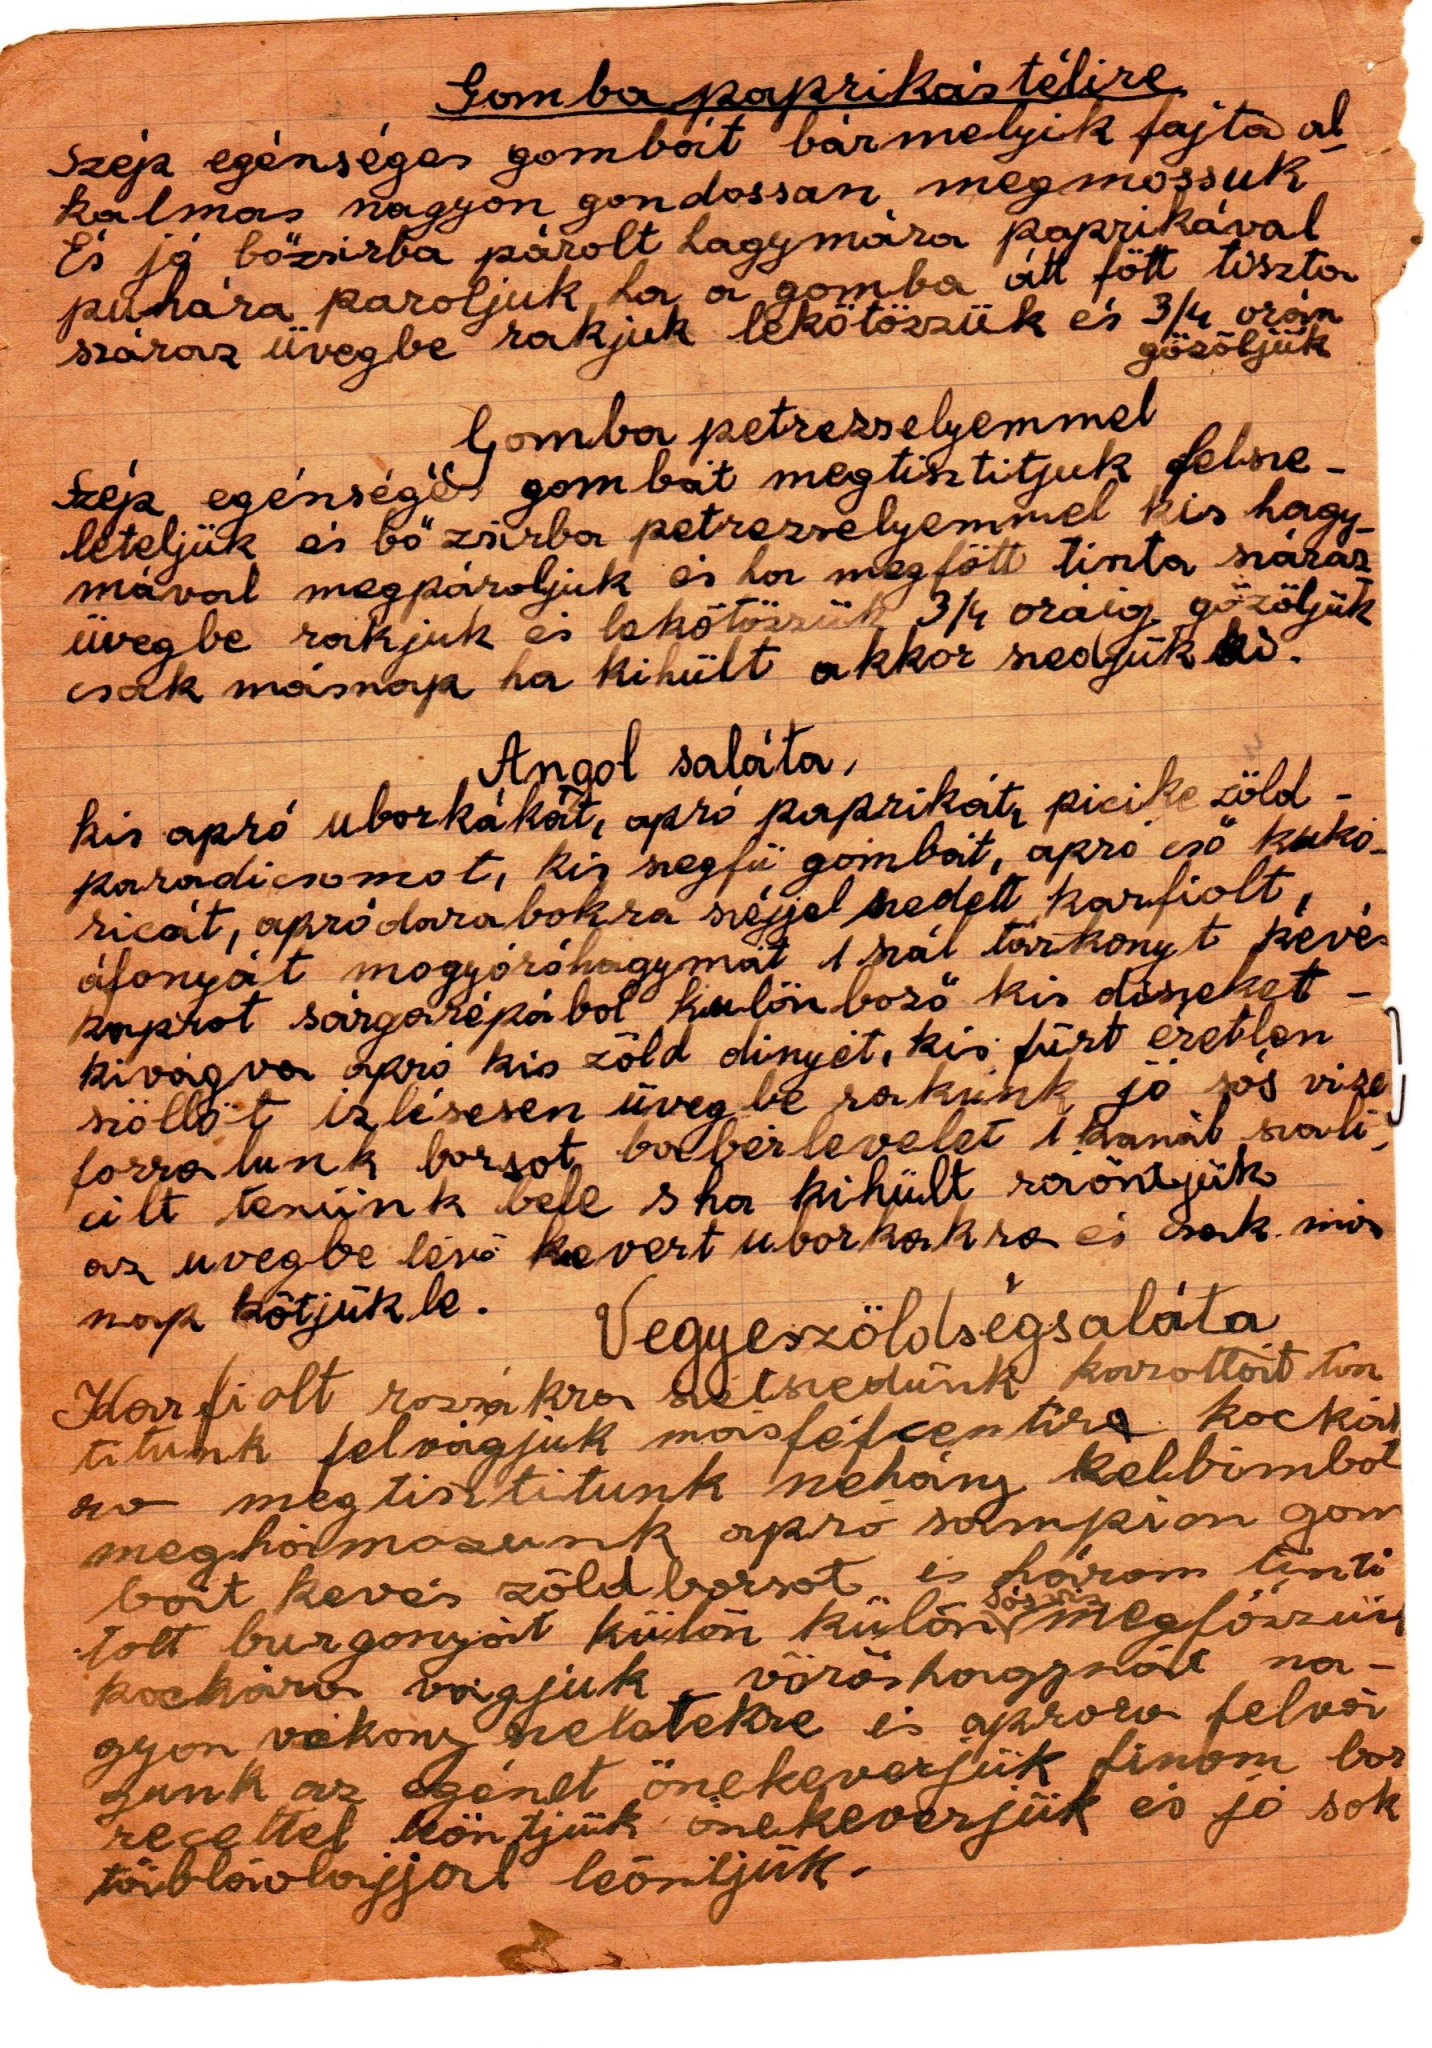 Gomba paprikás télire
Szép egénséges gombát bármelyik fajta al-
kalmas nagyon gondossan megmossuk
És jó bőzsirba párolt hagymára paprikával
puhára paroljuk ha a gomba átt fött tiszta
száraz üvegbe rakjuk lekötözzük és 3/4 orán
gözöljük
Gomba petrezselyemmel
Szép egénségés gombát megtisztitjuk felsze-
leteljük és bő zsirba petrezselyemmel kis hagy-
mával megpároljuk és ha megfött tiszta száraz
üvegbe rakjuk és lekötözzük 3/4 oráig gözöljük
csak másnap ha kihült akkor szedjük ki.
Angol saláta,
kis apró uborkákat, apró paprikát, picike zöld-
paradicsomot, kis szegfü gombát, apró cső kuko-
ricát, apródarabokra széjjel szedett karfiolt,
áfonyát mogyoróhagymát 1 szál tárkonyt kevés
kaprot sárgarépábol kulönbozö kis diszeket-
kivágva apró kis zöld dinyét, kis fürt éretlen
szöllöt izlésesen üvegbe rakunk jó sós vize
forralunk borsot babérlevelet 1 kanál szali-
cilt teszünk bele s ha kihült ráöntjük
az uvegbe lévö kevert uborkakra és csak más
nap kötjük le.
Vegyeszöldségsaláta
Karfiolt rozsákra szétszedünk karottát tisz
titunk felvágjuk másfélcentire kockás
ra megtisztitunk néhány kelbimbot
meghámozunk apró sampion gom
bát kevés zöldborsot és három tiszti
tott burgonyát külön külön sósviz megfözzük
kockára vágjuk vöröshagymát na-
gyon vékony szeletekre és aprora felvá
gunk az egészet öszekeverjük finom bor
recettel leöntjük öszekeverjük és jó sok
táblaolajjal leöntjük.